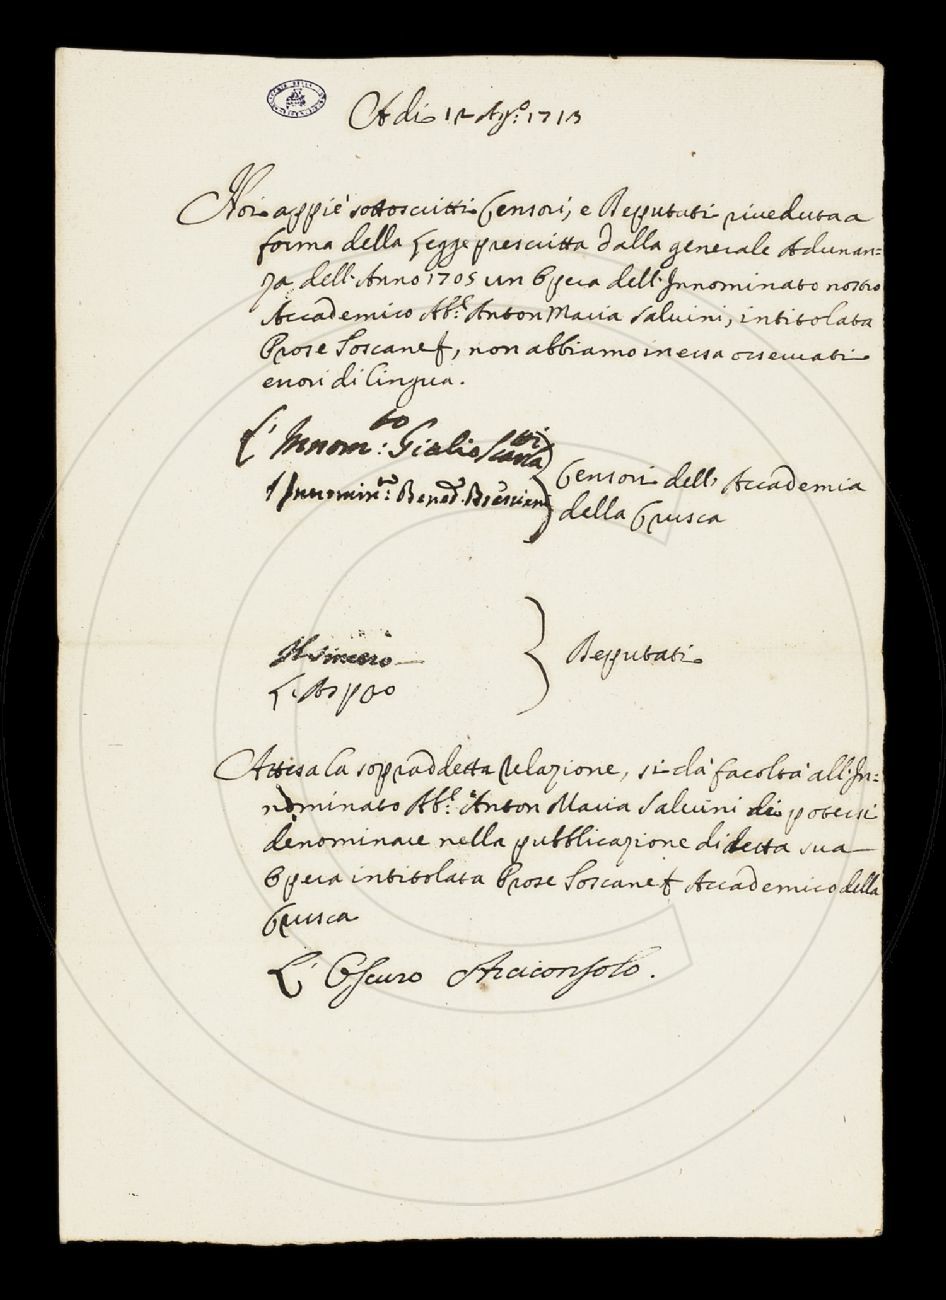 Adi 12 Ag.º 1713
Noi appiè sottoscritti Censori, e Deputati riveduta a
forma della Legge prescritta dalla generale Adunan=
za dell'Anno 1705 un Opera dell'Innominato nostro
Accademico Ab.e Anton Maria Salvini, intitolata
Prose Toscane, non abbiamo in essa osservati
errori di lingua.
L'Innom.to: Giulio
Censori dell'Accademia
l'Innomin.to: Bened.º Bresciani
della Crusca
Il Sincero
Deputati
L'Aspro
Attesa la sopraddetta Relazione, si dà facoltà all'In=
nominato Ab.e Anton Maria Salvini di potersi
denominare nella pubblicazione di detta sua
Opera intitolata Prose Toscane Accademico della
Crusca
L'Oscuro Arciconsolo.